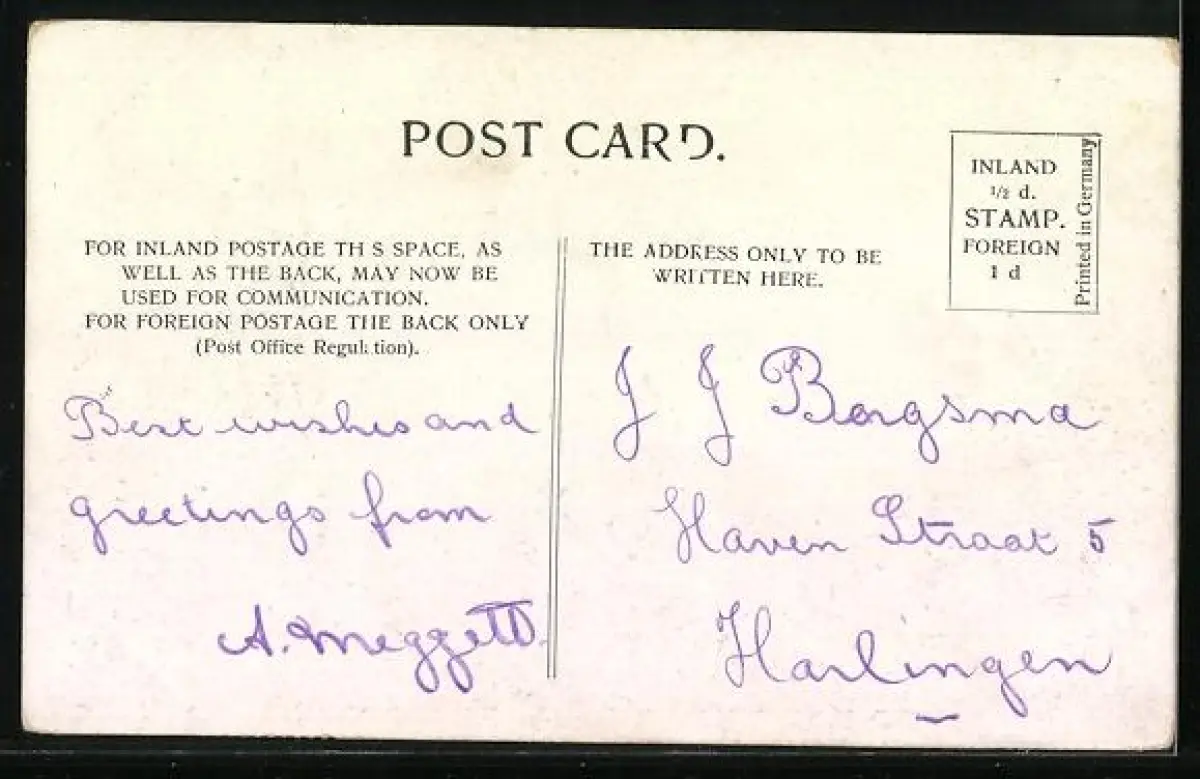 POST CARD.
INLAND
1/2 d.
STAMP.
FOREIGN
1 d
Printed in Germany
FOR INLAND POSTAGE TH S SPACE, AS
WELL AS THE BACK, MAY NOW BE
USED FOR COMMUNICATION.
FOR FOREIGN POSTAGE THE BACK ONLY
(Post Office Regulation).
THE ADDRESS ONLY TO BE
WRITTEN HERE.
Best wishes and
greetings from
A. Meggett
J J Borgsma
Haven Straat 5
Harlingen